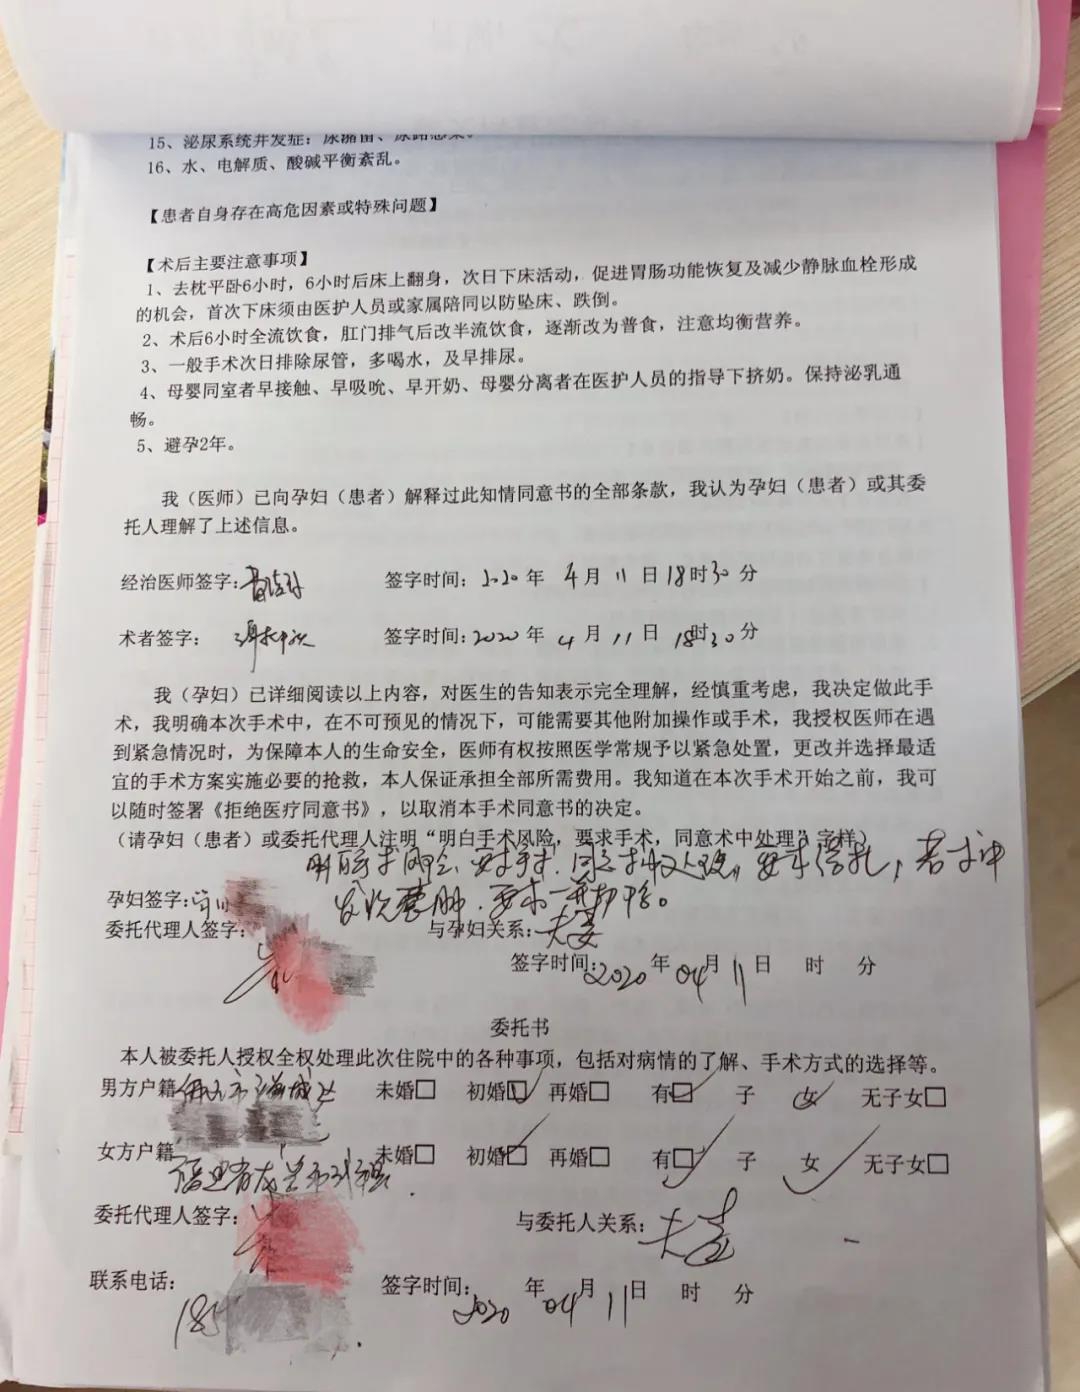 15、泌尿系统并发症：尿潴留、尿路感染。
16、水、电解质、酸碱平衡紊乱。
【患者自身存在高危因素或特殊问题】
【术后主要注意事项】
1、去枕平卧6小时，6小时后床上翻身，次日下床活动，促进胃肠功能恢复及减少静脉血栓形成
的机会，首次下床须由医护人员或家属陪同以防坠床、跌倒。
2、术后6小时全流饮食，肛门排气后改半流饮食，逐渐改为普食，注意均衡营养。
3、一般手术次日排除尿管，多喝水，及早排尿。
4、母婴同室者早接触、早吸吮、早开奶、母婴分离者在医护人员的指导下挤奶。保持泌乳通
畅。
5、避孕2年。
我（医师）已向孕妇（患者）解释过此知情同意书的全部条款，我认为孕妇（患者）或其委
托人理解了上述信息。
经治医师签字： 签字时间：2020年 4月 11日18时30分
术者签字： 签字时间：2020年 4月 11日 18时30分
我（孕妇）已详细阅读以上内容，对医生的告知表示完全理解，经慎重考虑，我决定做此手
术，我明确本次手术中，在不可预见的情况下，可能需要其他附加操作或手术，我授权医师在遇
到紧急情况时，为保障本人的生命安全，医师有权按照医学常规予以紧急处置，更改并选择最适
宜的手术方案实施必要的抢救，本人保证承担全部所需费用。我知道在本次手术开始之前，我可
以随时签署《拒绝医疗同意书》，以取消本手术同意书的决定。
（请孕妇（患者）或委托代理人注明“明白手术风险，要求手术，同意术中处理”字样）
明白手术风险，要求手术，同意术中处理，要求 ，若术中
孕妇签字： 要求一并
委托代理人签字： 与孕妇关系：夫妻
签字时间：2020年04月11日 时 分
委托书
本人被委托人授权全权处理此次住院中的各种事项，包括对病情的了解、手术方式的选择等。
男方户籍 市 未婚□ 初婚□ 再婚□ 有□ 子 女 无子女□
女方户籍 未婚□ 初婚□ 再婚□ 有□ 子 女 无子女□
福建省龙岩市
委托代理人签字： 与委托人关系：夫妻
联系电话： 签字时间：2020年04月11日 时 分
185